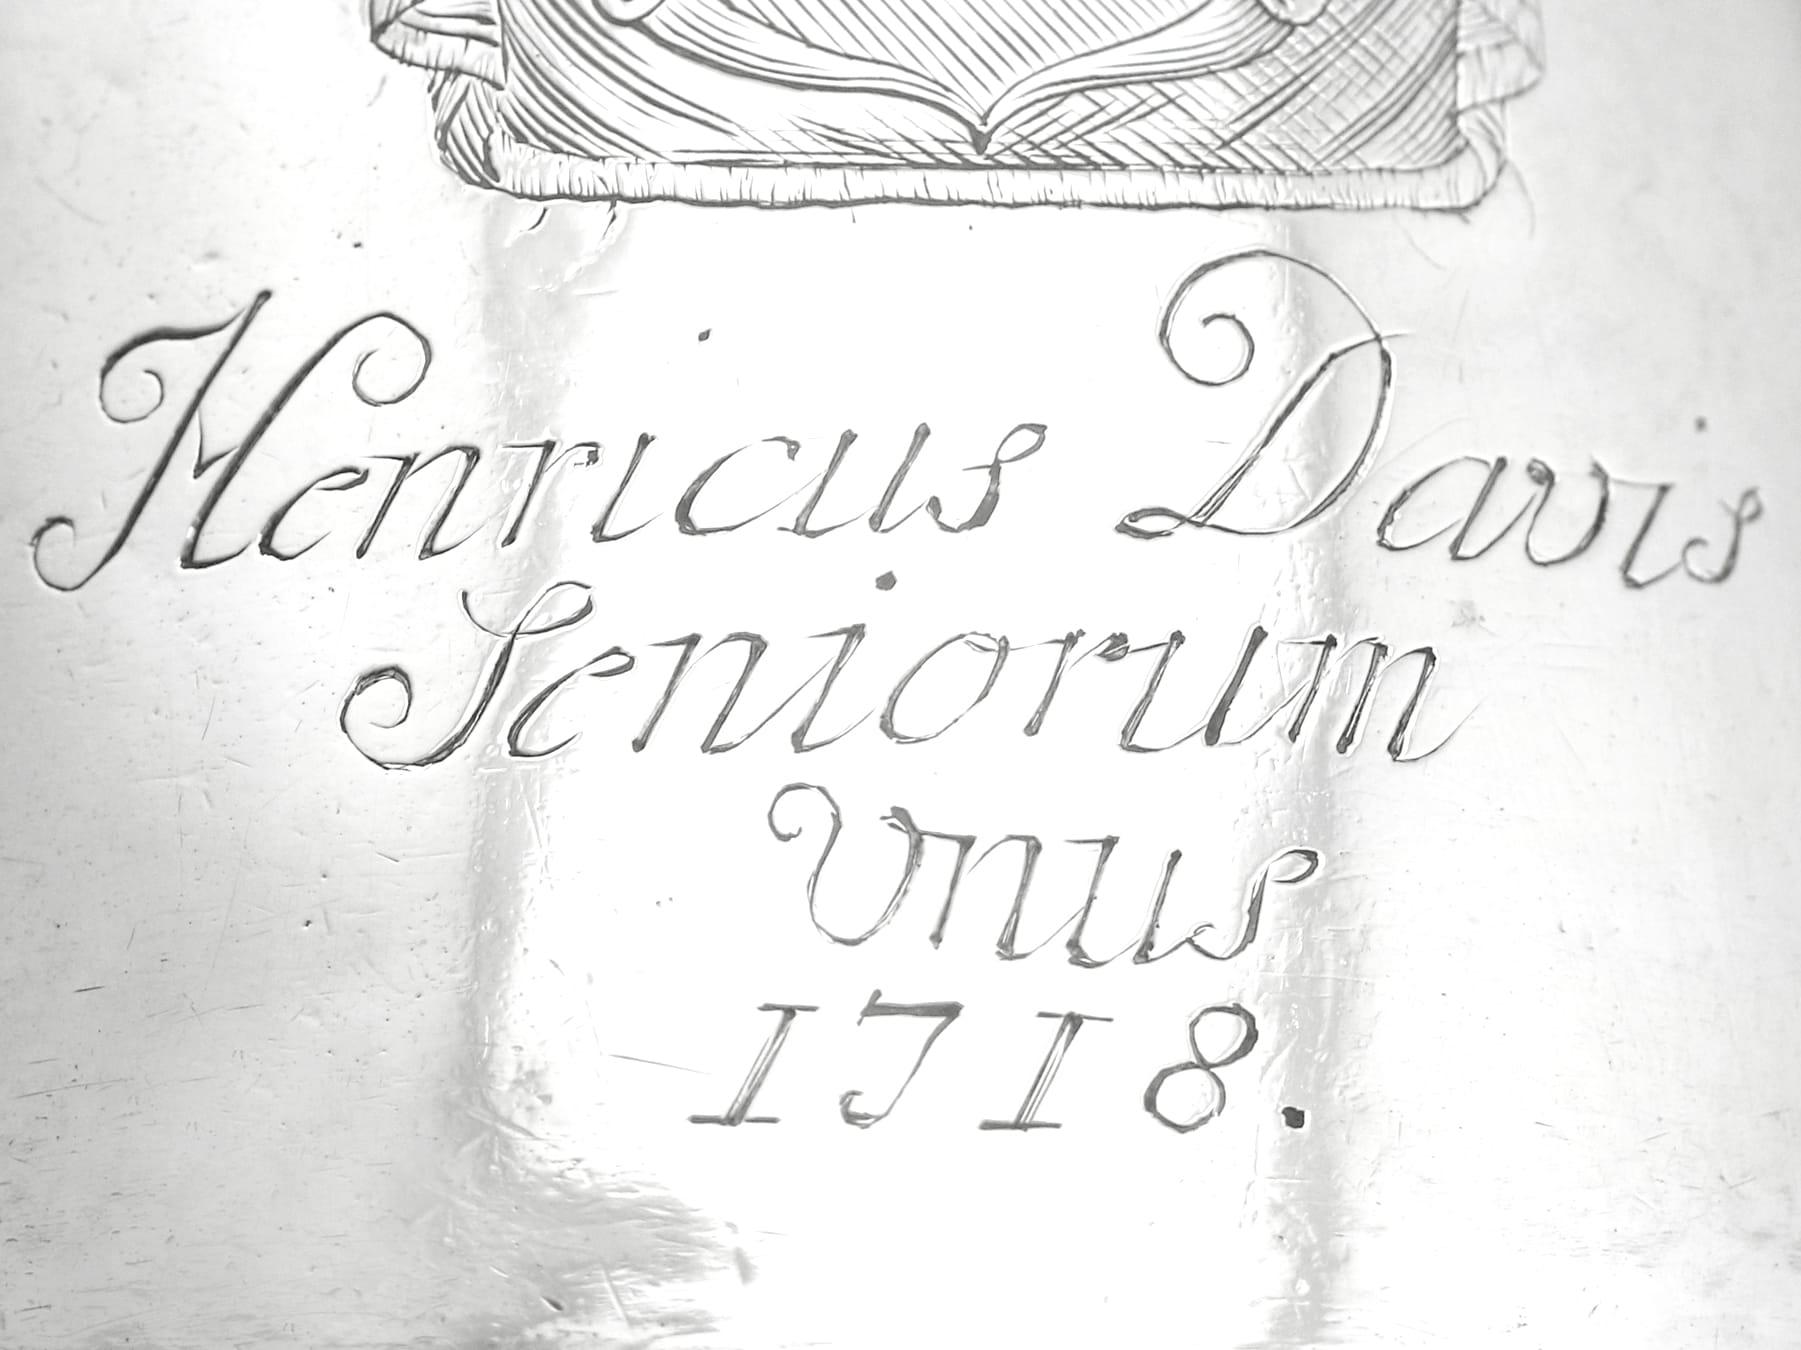 Henricus Davis
Seniorum
Vnus
1718.